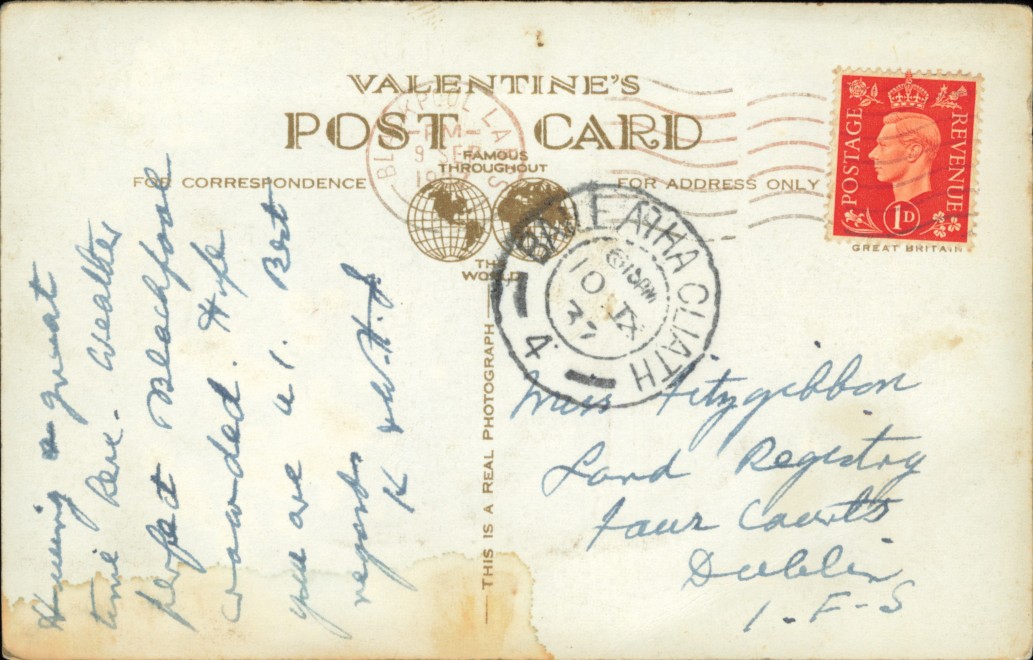 VALENTINE'S
POST CARD
FAMOUS
THROUGHOUT
THE
WORLD
FOR CORRESPONDENCE
FOR ADDRESS ONLY
THIS IS A REAL PHOTOGRAPH
BLACKPOOL LANCS
PM
9 SEP
POSTAGE
REVENUE
1D
GREAT BRITAIN
BAILE ATHA CLIATH
10 IX
37
4
Having a great
time here. Weather
perfect
crowded. Hope
you are Best
regards
K
Miss Fitzgibbon
Land Registry
Four Courts
Dublin
I-F-S